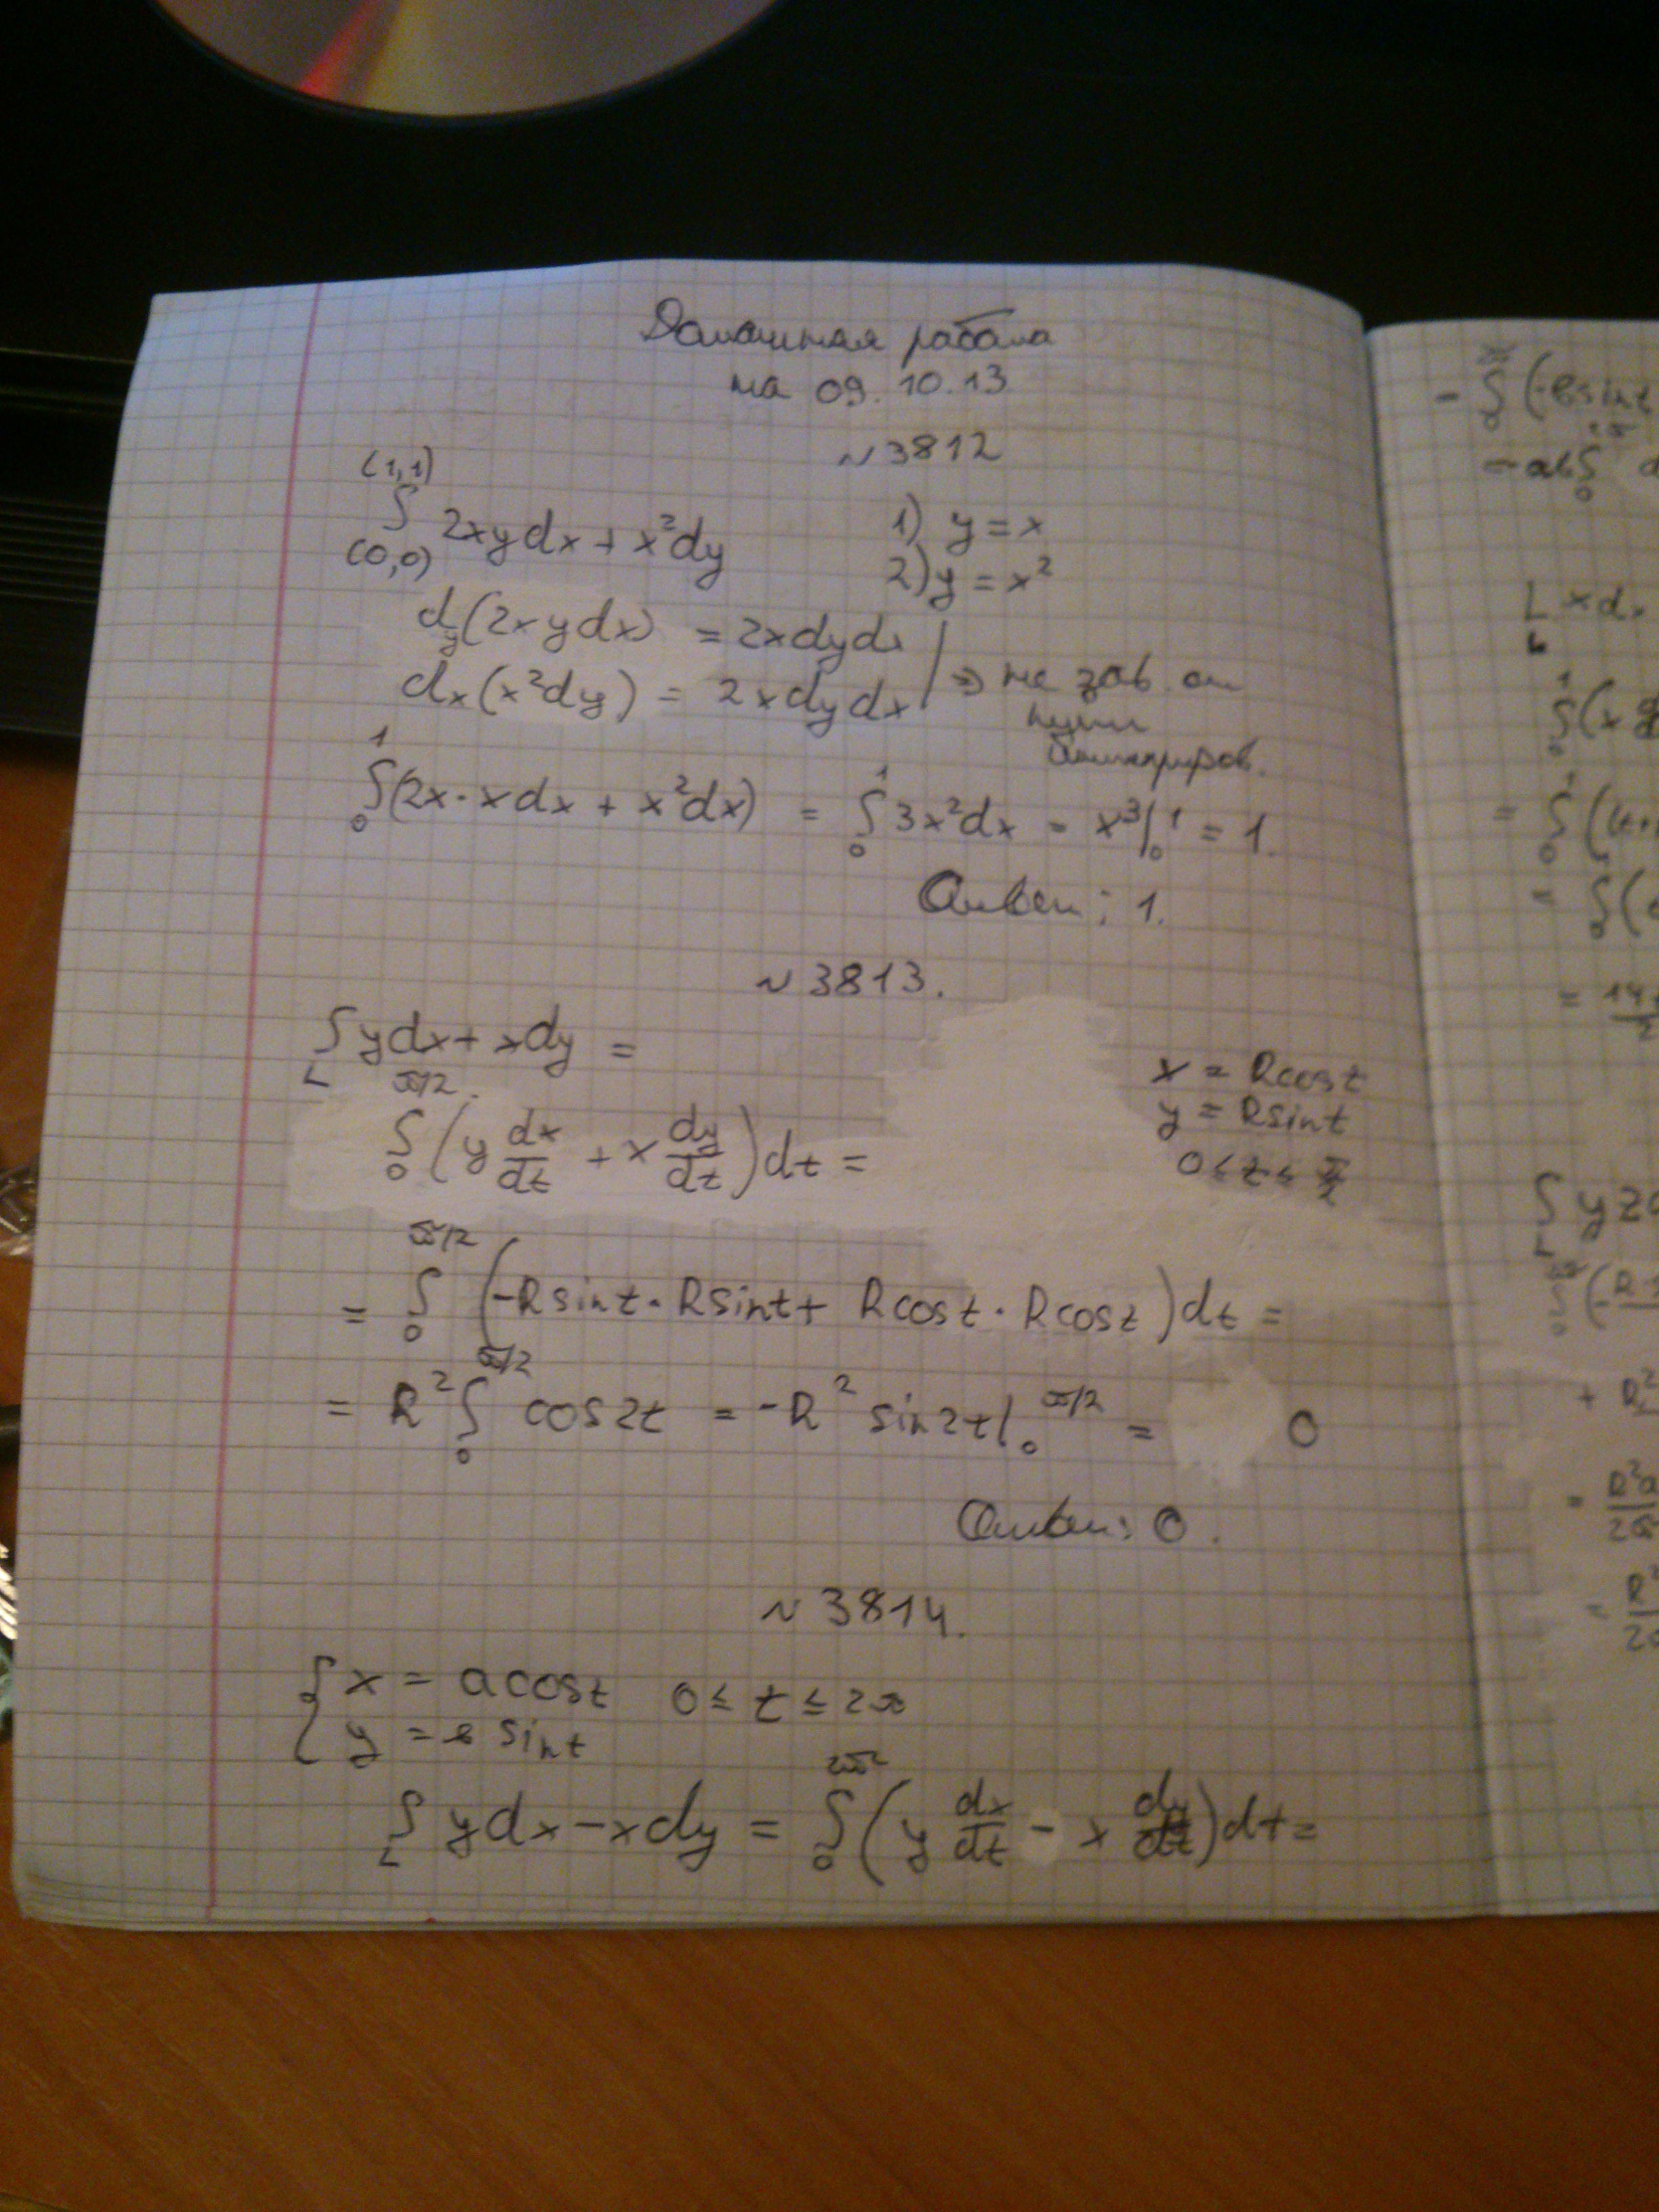 Домашняя работа
на 09.10.13
~ 3812
(1,1)
∫ 2xydx + x²dy
(0,0)
1) y = x
2) y = x²
d_y(2xydx) = 2xdydx
d_x(x²dy) = 2xdydx
⇒ не зав. от
пути
интегриров.
∫₀¹(2x·xdx + x²dx) = ∫₀¹ 3x²dx = x³|₀¹ = 1.
Ответ: 1.
~ 3813.
∫_L ydx + xdy =
x = Rcost
y = Rsint
0 ≤ t ≤ π/2
∫₀^{π/2} (y dx/dt + x dy/dt)dt =
= ∫₀^{π/2} (-Rsint·Rsint + Rcost·Rcost)dt =
= R² ∫₀^{π/2} cos2t = -R² sin2t|₀^{π/2} = 0
Ответ: 0.
~ 3814.
x = acost 0 ≤ t ≤ 2π
y = в sint
∫_L ydx - xdy = ∫₀^{2π} (y dx/dt - x dy/dt)dt =